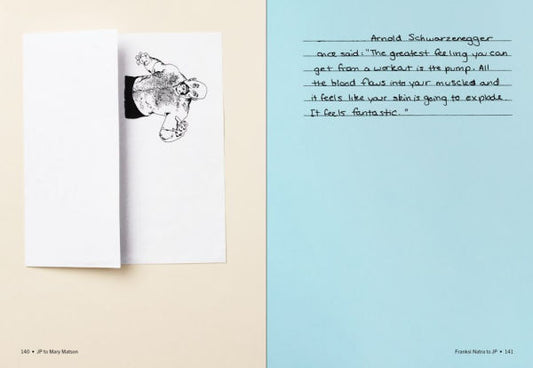 Arnold Schwarzenegger
once said: "The greatest feeling you can
get from a workout is the pump. All
the blood flows into your muscles and
it feels like your skin is going to explode.
It feels fantastic."
140 • JP to Mary Matson
Franksi Natra to JP • 141